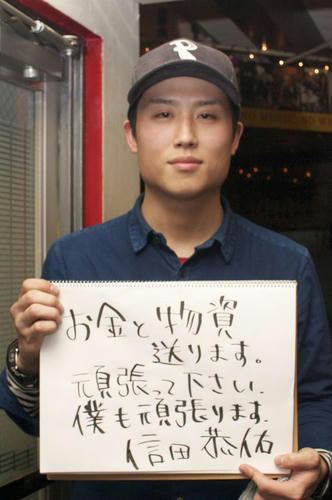 お金と物資
送ります。
頑張って下さい.
僕も頑張ります.
信田 恭佑